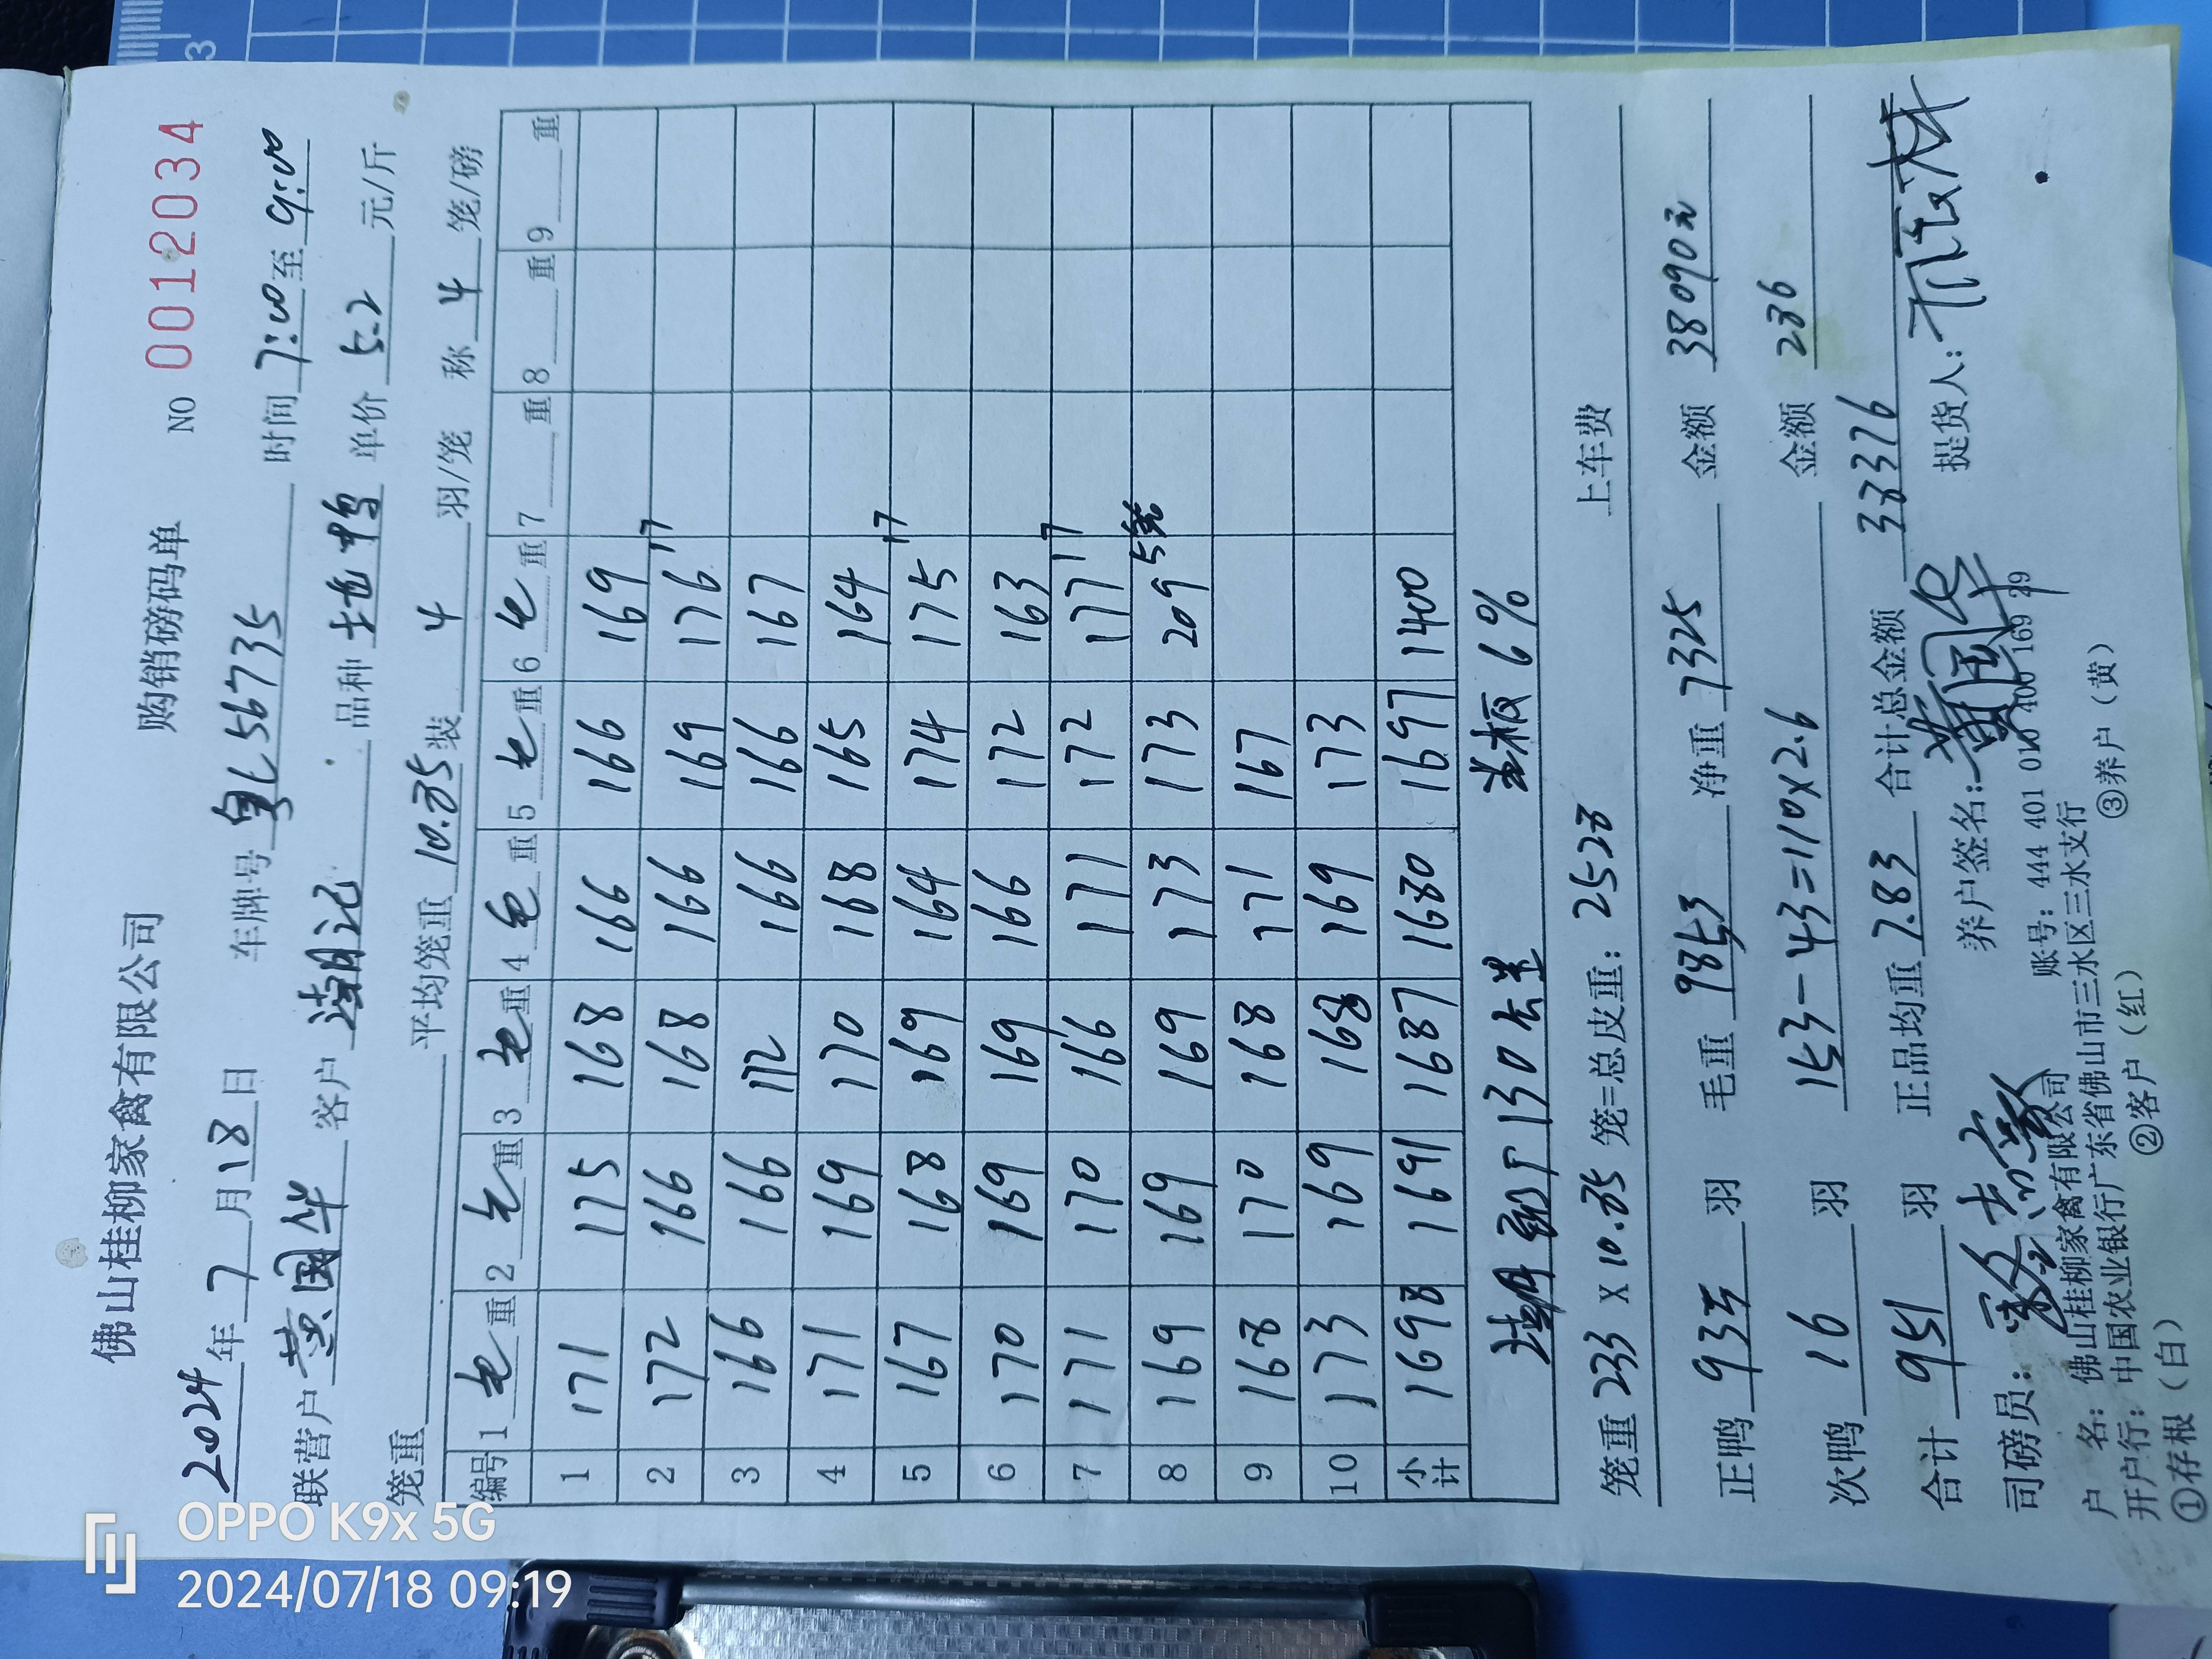 佛山桂柳家禽有限公司 购销磅码单 NO 0012034
2024年7月18日 车牌号 粤L56735 时间 7:00至9:00
联营户 黄国华 客户 潮记 品种 土台鸭 单价 5.2 元/斤
笼重 平均笼重 10.35 装 4 羽/笼 称 4 笼/磅
编号 1 毛重 2 毛重 3 毛重 4 毛重 5 毛重 6 毛重 7 重 8 重 9 重
1 171 175 168 166 166 169
2 172 166 168 166 169 176 17
3 166 166 172 166 166 167
4 171 169 170 168 165 164
5 167 168 169 164 174 175 17
6 170 169 169 166 172 163
7 171 170 166 171 172 177 17
8 169 169 169 173 173 209 5笼
9 168 170 168 171 167
10 173 169 168 169 173
小计 1698 1691 1687 1680 1697 1400
130 6%
笼重 233 X 10.35 笼=总皮重: 2523 上车费
正鸭 935 羽 毛重 9853 净重 7325 金额 38090元
次鸭 16 羽 153-43=110×2.6 金额 286
合计 951 羽 正品均重 7.83 合计总金额 38376
司磅员: 养户签名: 黄国华 提货人:
户 名: 佛山桂柳家禽有限公司 账号: 444 401 010 400 169 29
开户行: 中国农业银行广东省佛山市三水区三水支行
①存根(白) ②客户(红) ③养户(黄)
OPPO K9x 5G
2024/07/18 09:19